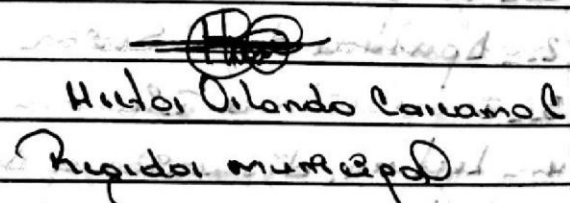 Hector Orlando Carcamo C
Regidor municipal